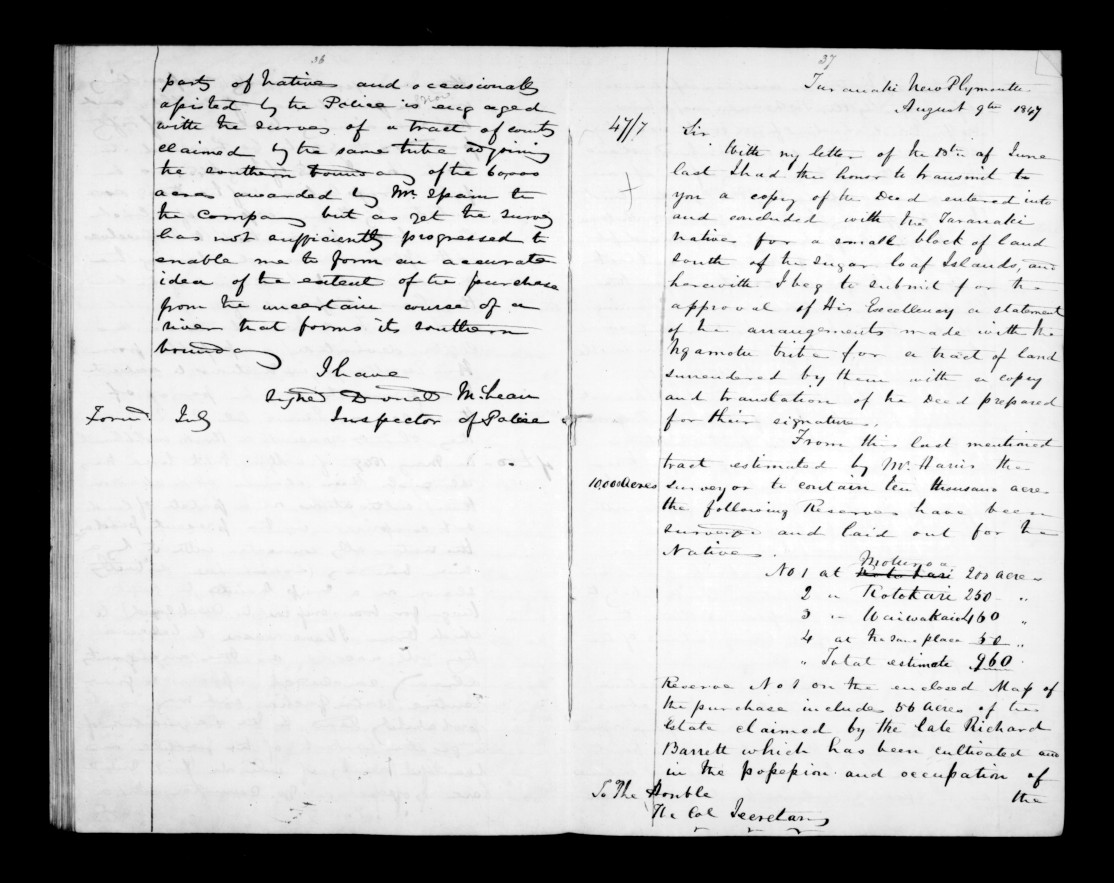 36
party of natives and occasionally
assisted by the Police is now engaged
with the survey of a tract of country
claimed by the same tribe adjoining
the southern boundary of the 60,000
acres awarded by Mr. Spain to
the Company but, as yet the survey
has not sufficiently progressed to
enable me to form an accurate
idea of the extent of the purchase
from the uncertain course of a
river that forms its southern
boundary
I have
signed Donald McLean
Inspector of Police
37
Taranaki New Plymouth
August 9th 1847
47/7
Sir
With my letter of the 18th of June
last I had the honor to transmit to
you a copy of the Deed entered into
and concluded with the Taranaki
natives for a small block of land
South of the Sugar loaf Islands, and
herewith I beg to submit for the
approval of His Excellency a statement
of the arrangements made with the
Ngamotu tribe for a tract of land
surrendered by them with a copy
and translation of the Deed prepared
for their signature.
From this last mentioned
tract estimated by Mr. Harris the
10,000 Acres surveyor to contain ten thousand acres
the following Reserves have been
surveyed and laid out for the
Natives
Moturoa
No 1 at Kotokari 200 acres
2 " Kotokari 250 "
3 " Waiwakaiho 460 "
4 at the same place 50 "
" Total estimate 960
Reserve No 1 on the enclosed Map of
the purchase includes 56 Acres of the
Estate claimed by the late Richard
Barrett which has been cultivated and
in the possession and occupation of
the
To The Honble
The Col Secretary